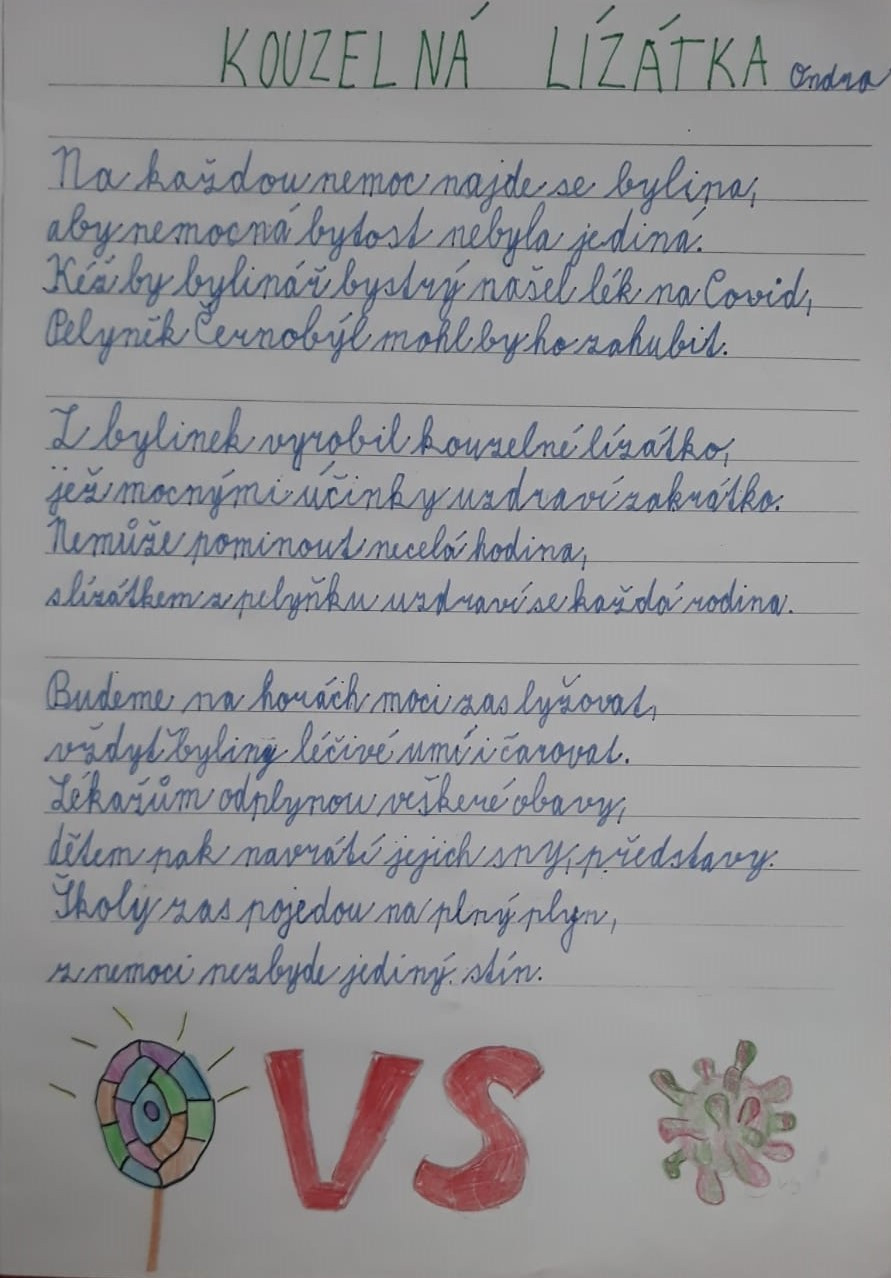 KOUZELNÁ LÍZÁTKA Ondra
Na každou nemoc najde se bylina,
aby nemocná bytost nebyla jediná.
Kéž by bylinář bystrý našel lék na Covid,
Pelyněk Černobýl mohl by ho zahubit.
Z bylinek vyrobil kouzelné lízátko,
jež mocnými účinky uzdraví zakrátko.
Nemůže pominout necelá hodina,
s lízátkem z pelyňku uzdraví se každá rodina.
Budeme na horách moci zas lyžovat,
vždyť byliny léčivé umí i čarovat.
Lékařům odplynou veškeré obavy,
dětem pak navrátí jejich sny, představy.
Školy zas pojedou na plný plyn,
z nemoci nezbyde jediný stín.
VS